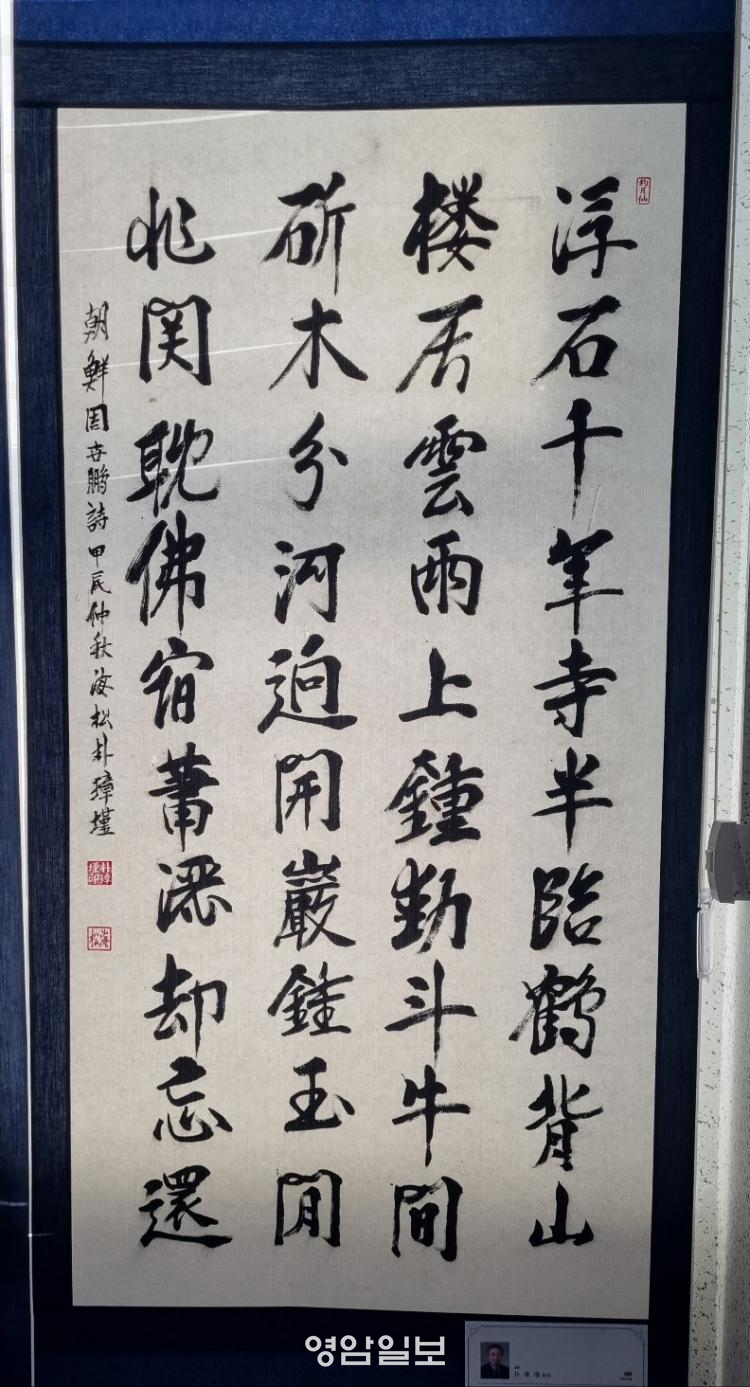 浮石千年寺半臨鶴背山
楼居雲雨上鍾動斗牛間
斫木分河逈開巖鍾玉閒
非関耽佛宿蕭灑却忘還
朝鮮周世鵬詩甲辰仲秋海松朴璋墐
海松
영암일보